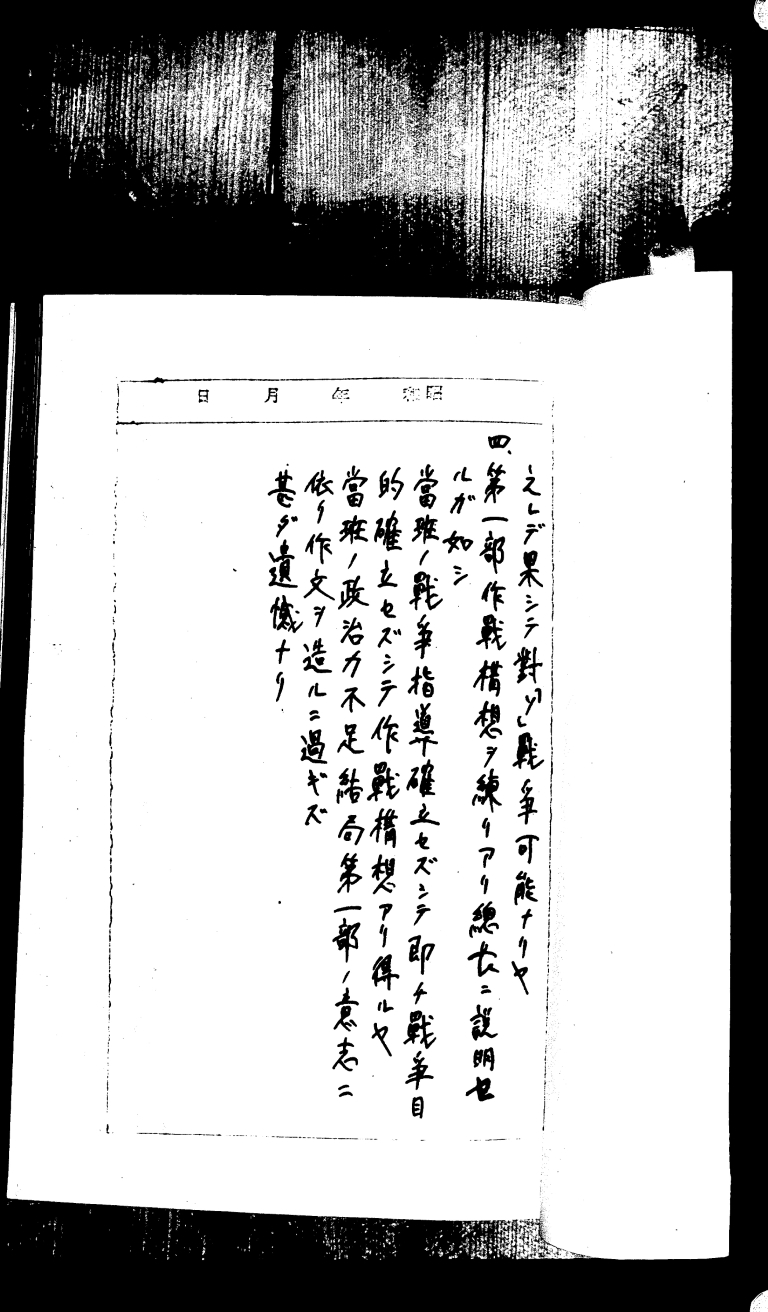 昭和 年 月 日
之レデ果シテ對「ソ」戰爭可能ナリヤ
四、第一部作戰構想ヲ練リアリ總長ニ説明セ
ルガ如シ
當班ノ戰爭指導確立セズシテ即チ戰爭目
的確立セズシテ作戰構想アリ得ルヤ
當班ノ政治力不足結局第一部ノ意志ニ
依リ作文ヲ造ルニ過ギズ
甚ダ遺憾ナリ